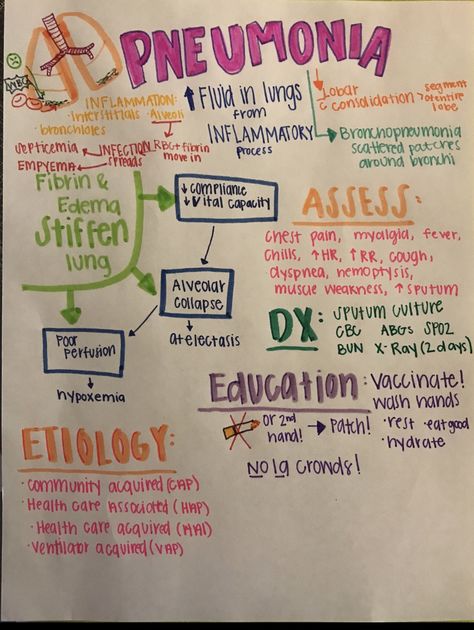 PNEUMONIA
WBC
INFLAMMATION:
· interstitials · Alveoli
· bronchioles
RBC + fibrin
move in
INFECTION
spreads
septicemia
EMPYEMA
↑ Fluid in lungs
from
INFLAMMATORY
process
Lobar
consolidation → segment
or entire
lobe
Bronchopneumonia
scattered patches
around bronchi
Fibrin &
Edema
Stiffen
lung
↓ compliance
↓ vital capacity
Alveolar
collapse
atelectasis
Poor
perfusion
hypoxemia
ASSESS:
chest pain, myalgia, fever,
chills, ↑HR, ↑RR, cough,
dyspnea, hemoptysis,
muscle weakness, ↑sputum
DX: sputum culture
CBC ABGs SPO2
BUN X-Ray (2 days)
Education: vaccinate!
wash hands
or 2nd
hand! → Patch!
· rest · eat good
· hydrate
NO lg crowds!
ETIOLOGY:
· community acquired (CAP)
· Health care Associated (HAP)
· Health care acquired (HAI)
· ventilator acquired (VAP)